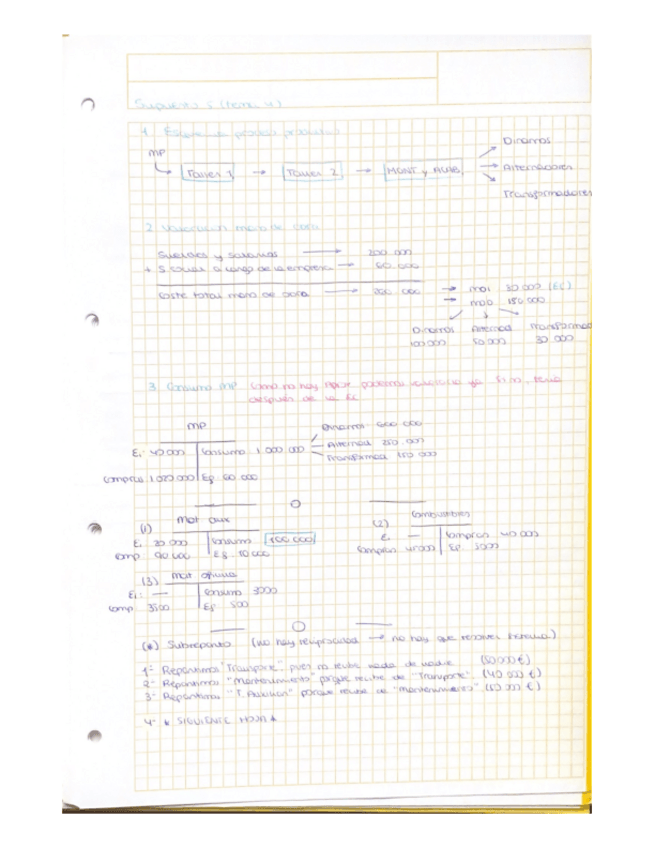 Supuesto 5 (tema 4)
1. Esquema proceso productivo
MP
Taller 1 → Taller 2 → MONT y ACAB.
Dinamos
Alternadores
Transformadores
2. Valoración mano de obra
Sueldos y salarios → 200 000
+ S. social a cargo de la empresa → 60 000
Coste total mano de obra → → MOI 30 000 (EC)
→ MOD 180 000
Dinamos Alternad Transformad
100 000 50 000 30 000
3. Consumo MP Como no hay podemos ya Si no, sería
después de la EC
MP
Dinamos 600 000
Ei 40 000 Consumo 1 000 000 Alternad 250 000
Transformad 150 000
Compras 1 020 000 Ef 60 000
(1) Mat aux
Ei 20 000 Consumo 100 000
Comp 90 000 Ef 10 000
(2) Combustibles
Ei — Compras 40 000
Compras Ef
(3) Mat oficina
Ei: — Consumo 3000
Comp 3500 Ef 500
(*) Subreparto (no hay reciprocidad → no hay que resolver sistema)
1º Repartimos "Transporte", pues no recibe nada de nadie
2º Repartimos "Mantenimiento" porque recibe de "Transporte". (40 000 €)
3º Repartimos "T. Auxiliar" porque recibe de "mantenimiento"
4º * SIGUIENTE HOJA *